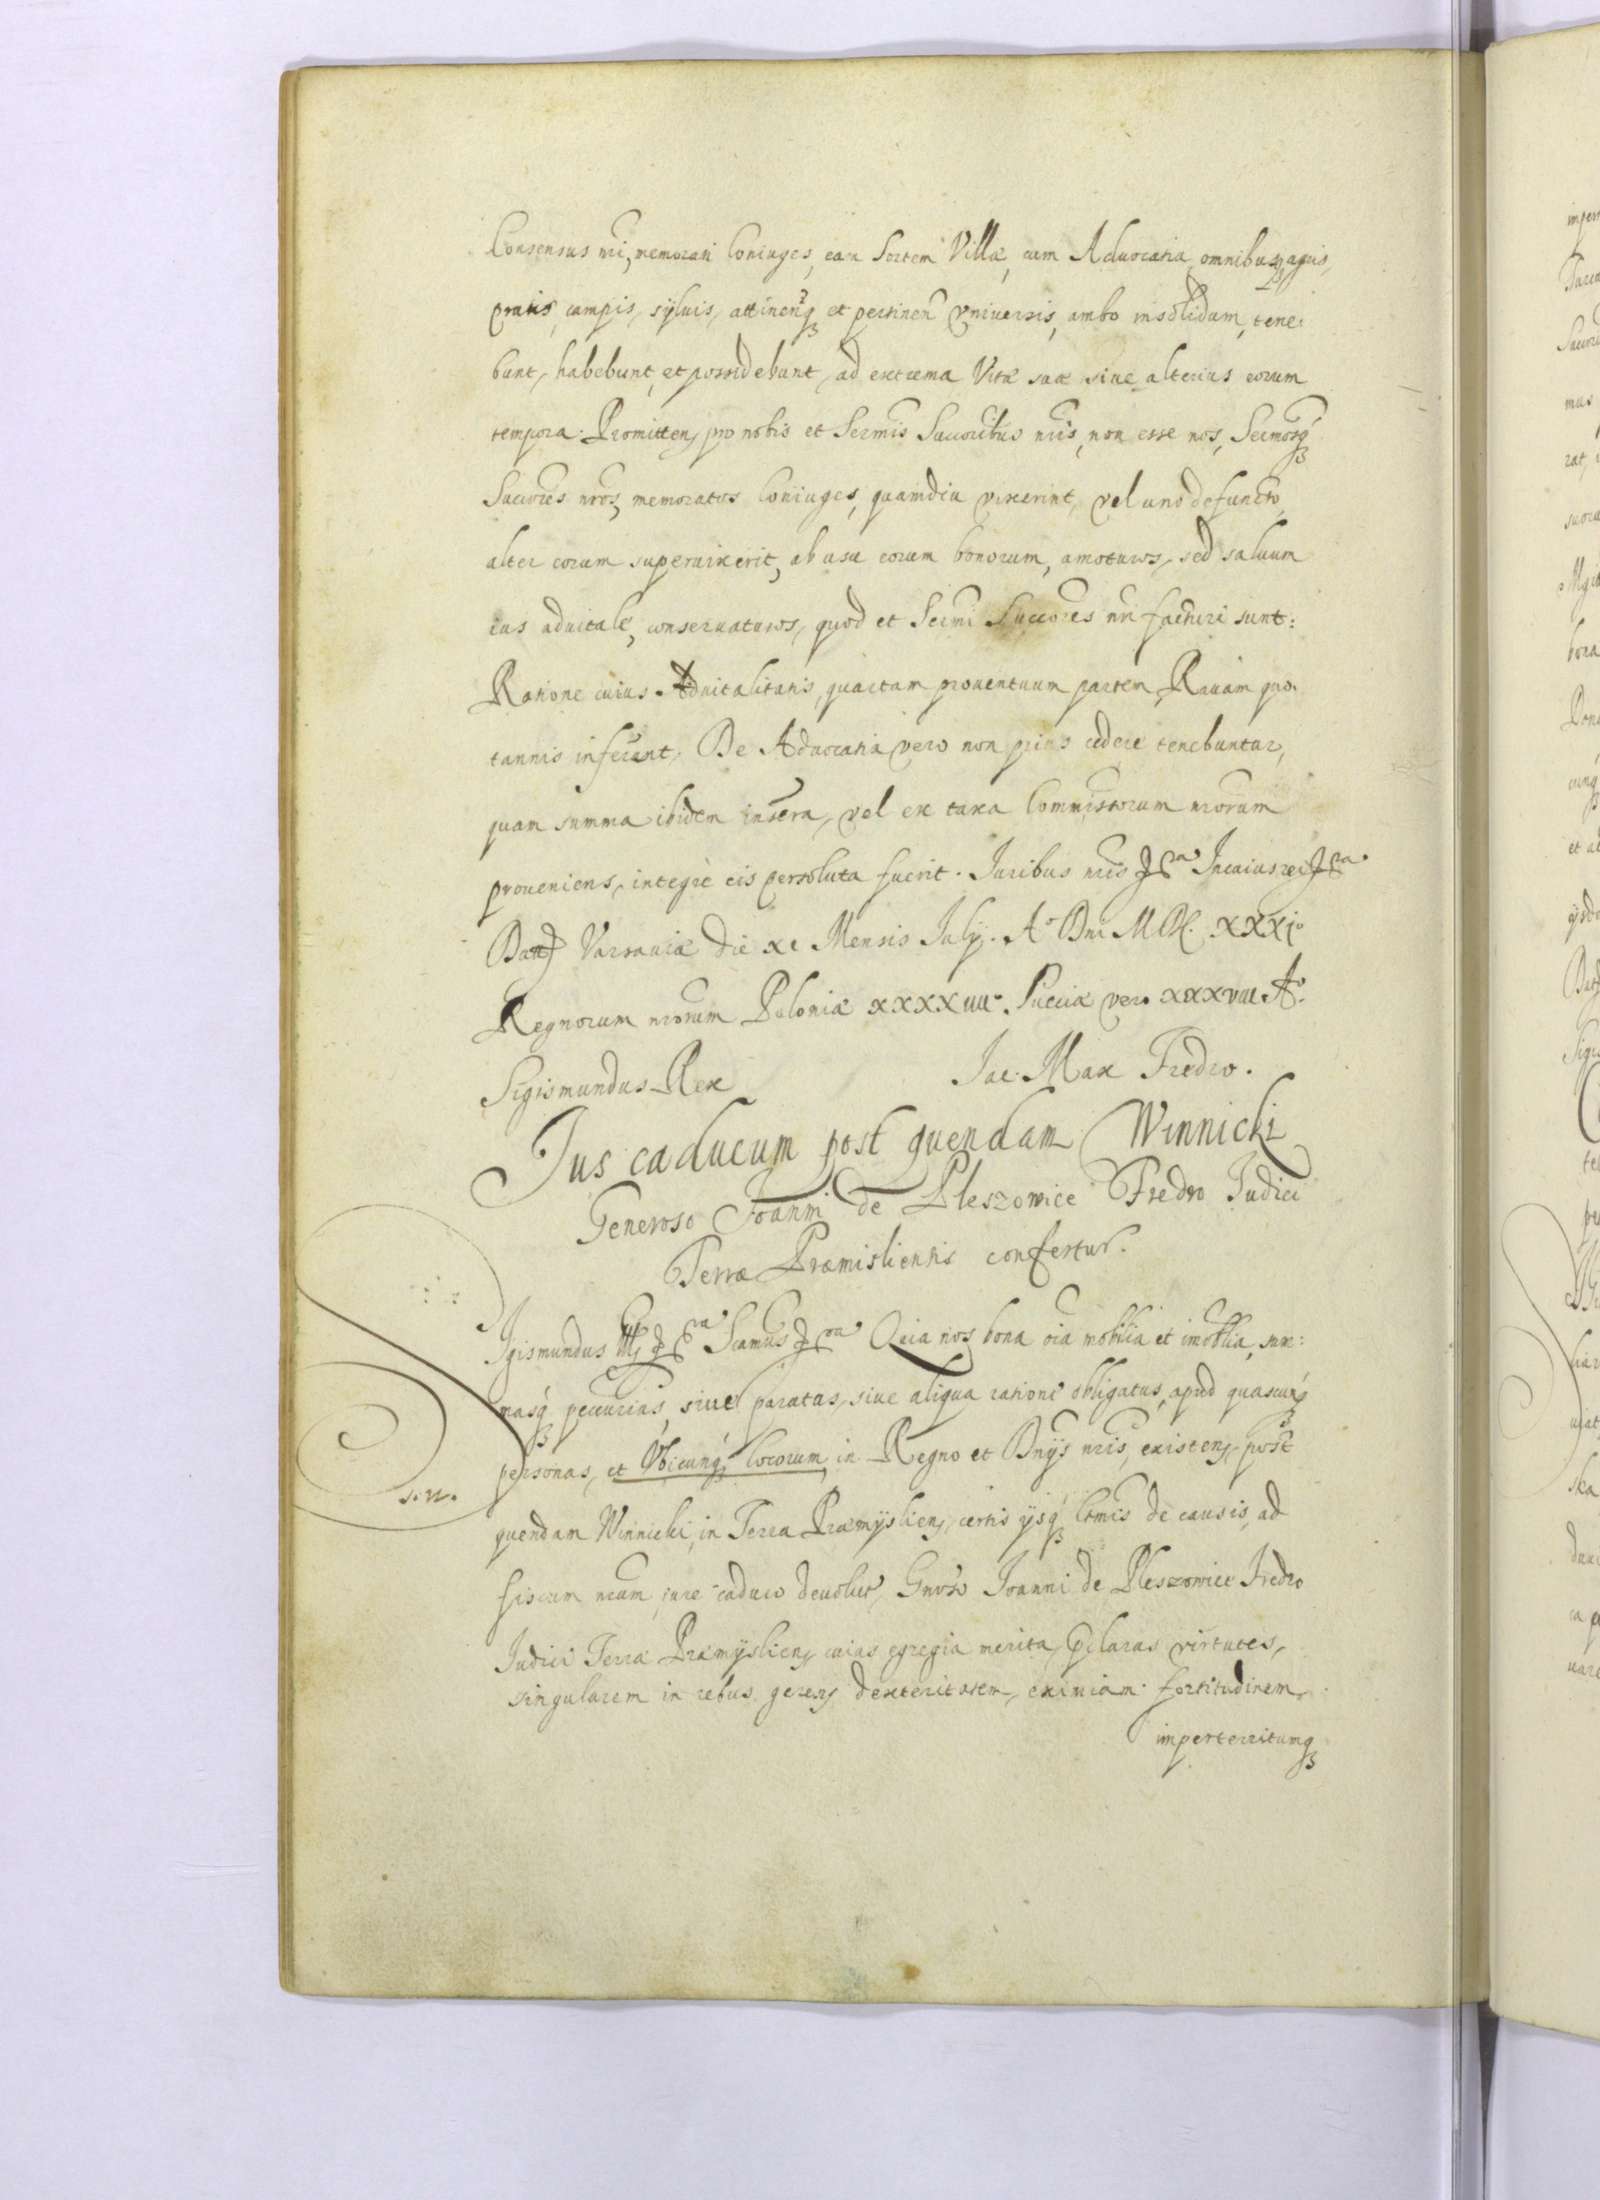 Consensus nri, memorati Coniuges, eam Sortem Villæ, cum Aduocatia, omnibusq agris,
pratis, campis, syluis, attinenq et pertinen vniuersis, ambo insolidum, tene:
bunt, habebunt, et possidebunt, ad extrema Vitæ suæ siue alterius eorum
tempora. Promitten, pro nobis et Sermis Succoribus nris, non esse nos, Sermosq
Succores nros, memoratos Coniuges, quamdiu vixerint, vel uno defuncto,
alter eorum superuixerit, ab usu eorum bonorum, amoturos, sed saluum
ius aduitale, conseruaturos, quod et Sermi Succores nri facturi sunt:
Ratione cuius Aduitalitatis, quartam prouentuum partem, Rauam quo.
tannis inferent. De Aduocatia vero non prius cedere tenebuntur,
quam summa ibidem inserta, vel ex taxa Commissorum nrorum
proueniens, integre eis persoluta fuerit. Juribus nris Incuius rei
Dat Varsauiæ die xi Mensis July. Ao Dni MDC. XXXIo
Regnorum nrorum Poloniæ XXXXIIII. Sueciæ vero XXXVIII Ao.
Sigismundus Rex Jac. Max Fredro.
Jus caducum post quendam Winnicki
Generoso Joanni de Pleszowice Fredro Judici
Terræ Præmisliensis confertur.
Sigismundus III Scamus Quia nos bona oia mobilia et imobilia, sum:
masq pecunias, siue paratas, siue aliqua ratione obligatas, apud quascunq
personas, et Vbicunq locorum, in Regno et Dnijs nris, existen, post
s. n.
quendam Winnicki, in Terra Præmyslien, certis ysq ltmis de causis, ad
fiscum nrum, iure caduco deuolut, Gnoso Joanni de Pleszowice Fredro
Judici Terræ Præmyslien, cuius egregia merita, pclaras virtutes,
singularem in rebus geren, dexteritatem, eximiam fortitudinem
imperterritumq